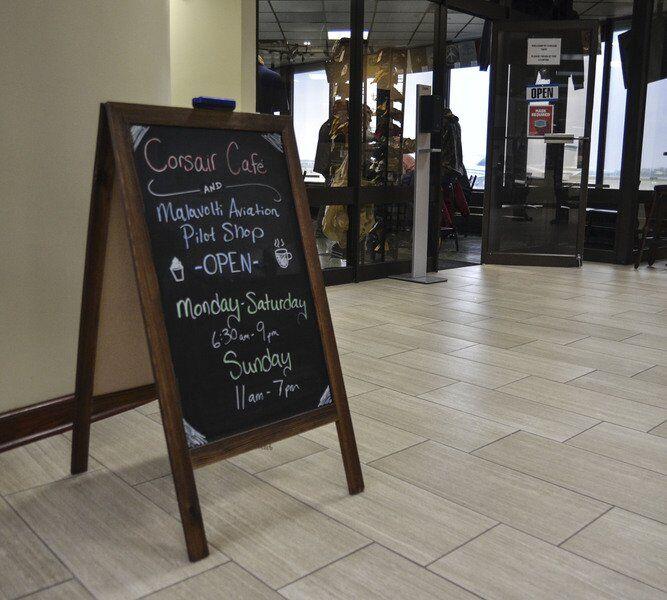 Corsair Café
AND
Malavolti Aviation
Pilot Shop
-OPEN-
Monday-Saturday
6:30am-9pm
Sunday
11am-7pm
OPEN
MASK
REQUIRED